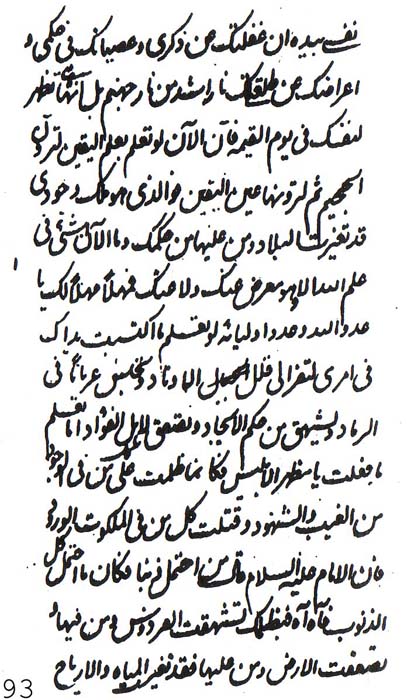 نفسي بيده ان غفلتك عن ذكري وعصيانك في حكمي و
اعراضك عن طلعتك نار اشد من نار جهنم بل انها تظهر
لنفسك في يوم القيمه فان الآن لو تعلم بعلم اليقين لترون
الجحيم ثم لترونها عين اليقين فوالذي هو
قد تغيرت البلاد ومن عليها من حكمك وما الآن شئ في
علم الله الا وهو معرض عنك ولاعنك فمهلا مهلا لك يا
عدو الله وعدو اوليائه لو تعلم ما اكتسبت يداك
في امري لتفر الى قلل الجبال وتجلس عريانا في
الرماد وتشهق من حكم الايجاد وتصعق الفؤاد اما تعلم
ما فعلت يا مظهر الابليس فكانما ظلمت على كل من في الوجود
من الغيب والشهود وقتلت كل من في الملكوت
فان الامام عليه السلام قال من احتمل ذنبا فكان ما احتمل كل
الذنوب فآه آه فبظلمك تشهقت الفردوس ومن فيها و
تصعقت الارض ومن عليها فقد تغيرت المياه والارياح
93